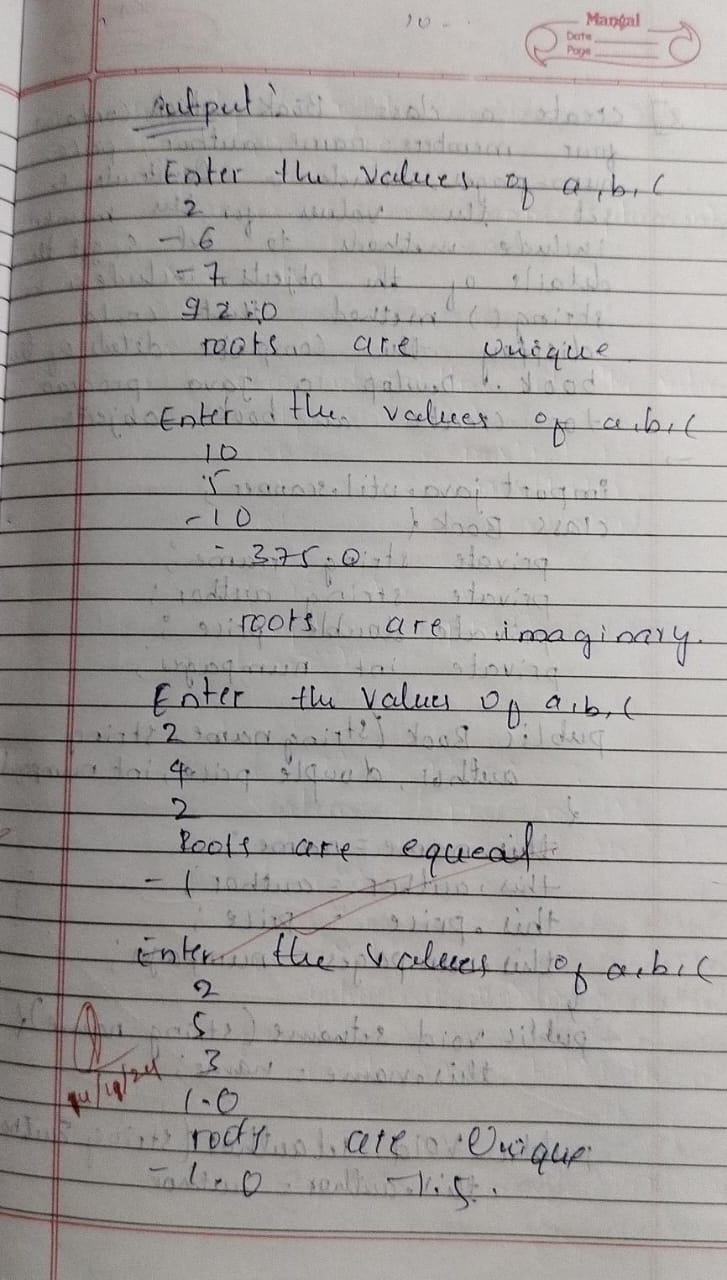 Mangal
Date
Page
Output:
Enter the values of a,b,c
2
-6
-7
92.0
roots are unique
Enter the values of a,b,c
10
5
-10
-375.0
roots are imaginary.
Enter the values of a,b,c
2
4
2
Roots are equal
-1
Enter the values of a,b,c
2
5
3
1.0
roots are unique
-1.0 -1.5.